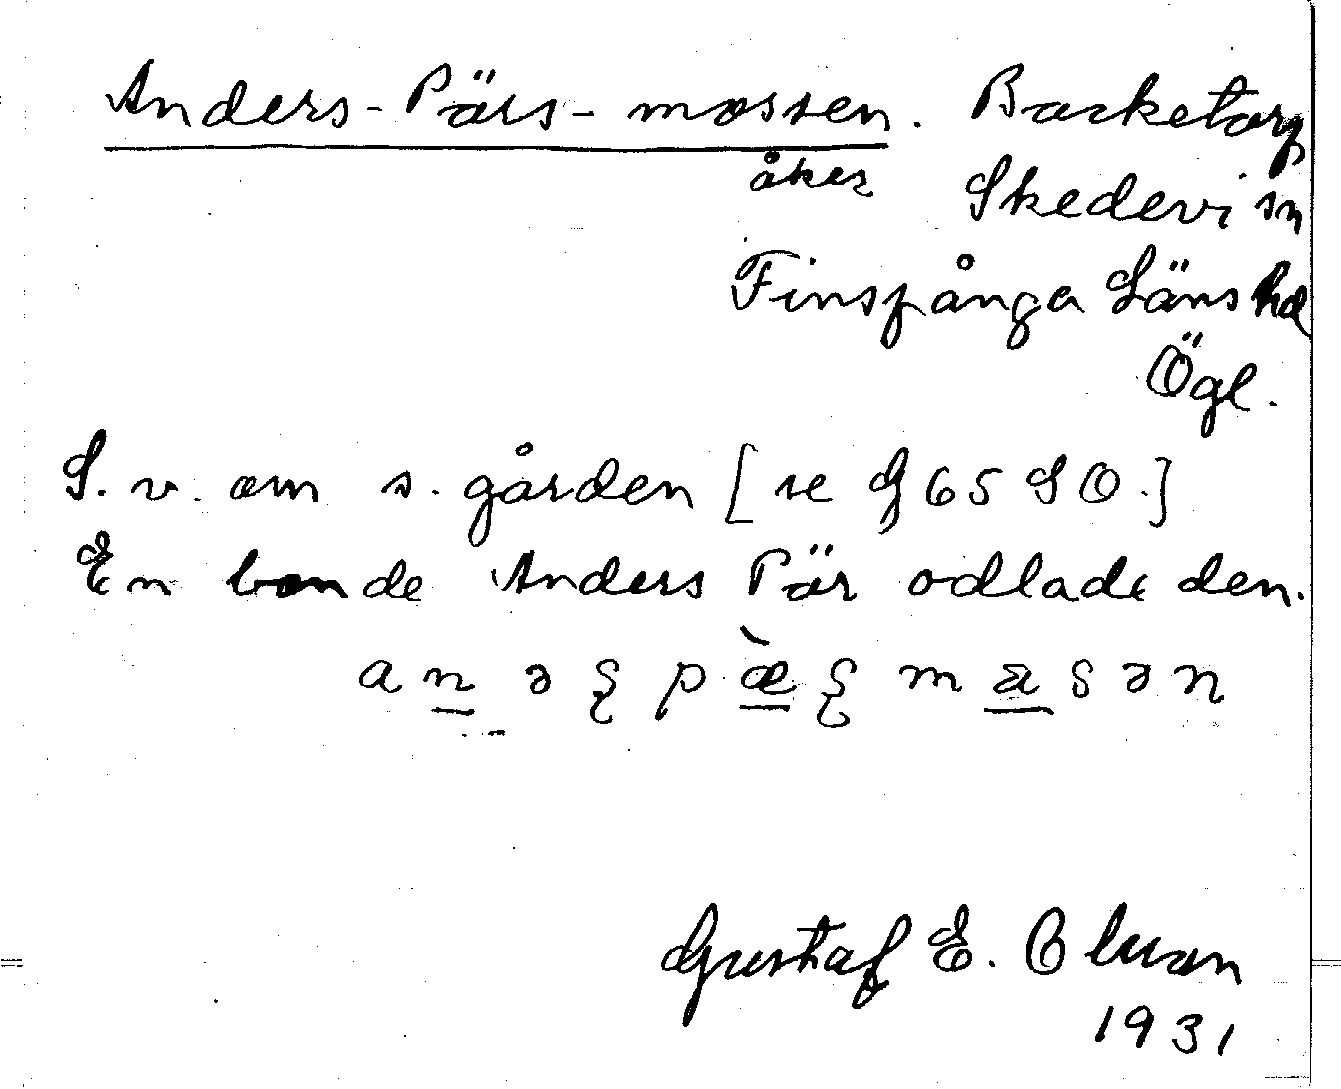 Anders-Pärs-mossen. Backetorp
åker Skedevi sn
Finspånga Läns hd
Ögl.
S. v. om s. gården [se G 65 SO.]
En bonde Anders Pär odlade den.
Gustaf E. Olsson
1931